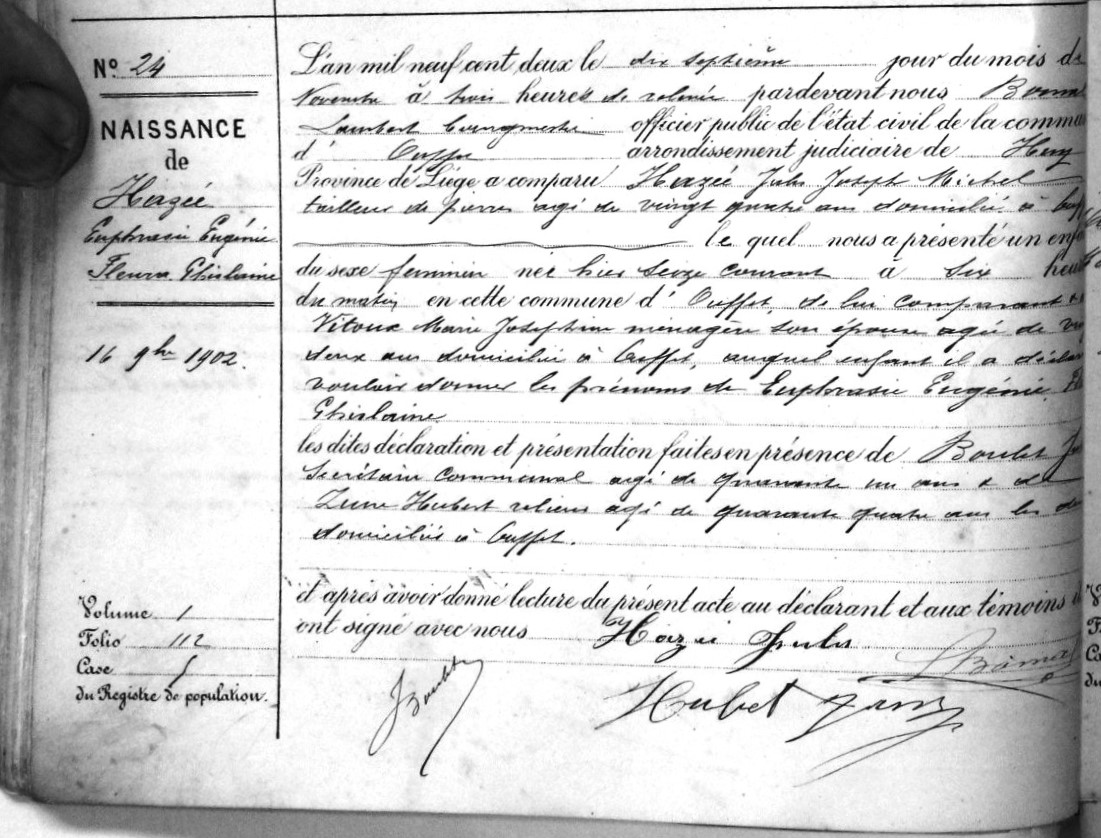 Nº 24
NAISSANCE
de
Hazée
Euphrasie Eugénie
Fleura Ghislaine
16 9bre 1902.
Volume 1
Folio 112
Case 5
du Registre de population.
L'an mil neuf cent deux le dix septième jour du mois de
Novembre à trois heures de relevée pardevant nous
Lambert bourgmestre officier public de l'état civil de la commu
d' Ouffet arrondissement judiciaire de Huy
Province de Liége a comparu Hazée Jules Joseph Michel
tailleur de pierres agé de vingt quatre ans domicilié à
le quel nous a présenté un enfa
du sexe féminin née hier seize courant à six heu
du matin en cette commune d' Ouffet, de lui comparant
Vitoux Marie Josephine ménagère son épouse agée de
deux ans domiciliée à Ouffet, auquel enfant il a déclar
vouloir donner les prénoms de Euphrasie Eugénie
Ghislaine
les dites déclaration et présentation faites en présence de Boulet
Secrétaire communal agé de quarante un ans & d
Hubert relieur agé de quarante quatre ans les
domiciliés à Ouffet.
et après avoir donné lecture du présent acte au déclarant et aux témoins
ont signé avec nous Hazée Jules
JBoulet
Hubert